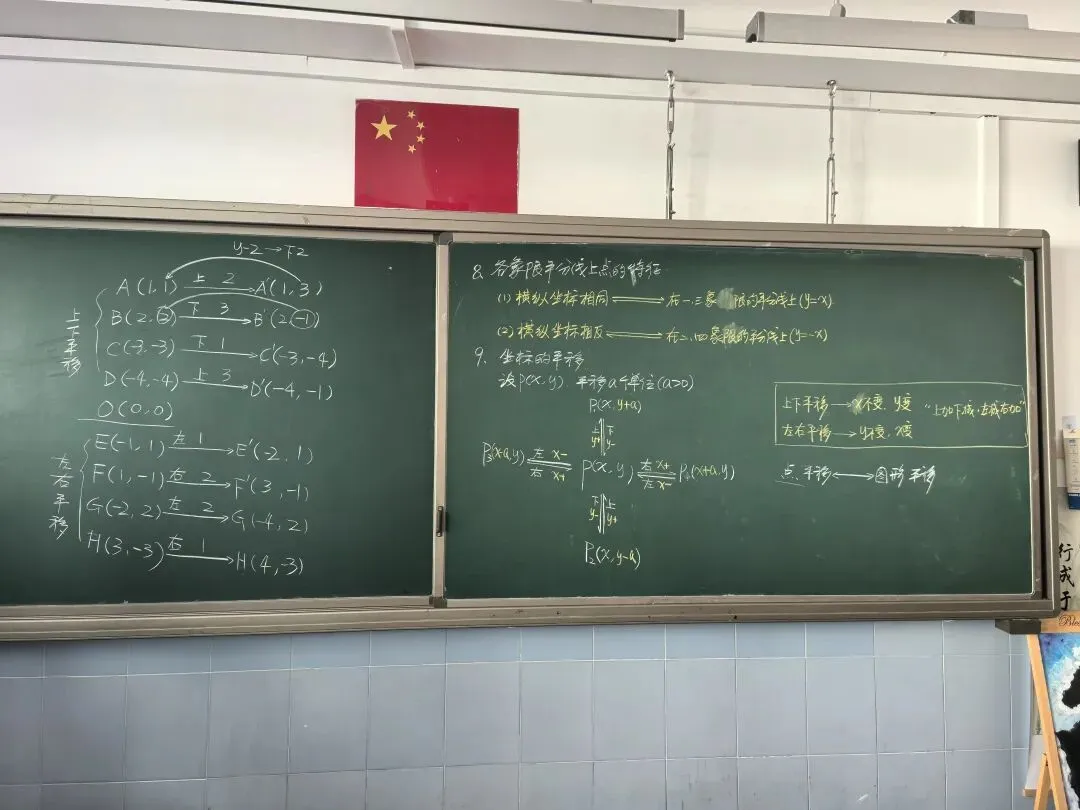 y-2→下2
上下平移
A(1,1) 上 2 → A'(1,3)
B(2,3) 下 3 → B'(2,-1)
C(-3,-3) 下 1 → C'(-3,-4)
D(-4,-4) 上 3 → D'(-4,-1)
O(0,0)
左右平移
E(-1,1) 左 1 → E'(-2,1)
F(1,-1) 右 2 → F'(3,-1)
G(-2,2) 左 2 → G(-4,2)
H(3,-3) 右 1 → H(4,-3)
8. 各象限平分线上点的特征
(1) 横纵坐标相同 ⟺ 在一、三象限的平分线上(y=x)
(2) 横纵坐标相反 ⟺ 在二、四象限的平分线上(y=-x)
9. 坐标的平移
设P(x,y) 平移a个单位(a>0)
P₁(x,y+a)
上 y+ 下 y-
P₃(x-a,y) 左 x- 右 x+ P(x,y) 右 x+ 左 x- P₄(x+a,y)
下 y- 上 y+
P₂(x,y-a)
上下平移 → x不变,y变
左右平移 → y不变,x变
"上加下减,左减右加"
点平移 ⟷ 图形平移
行成于
Ble